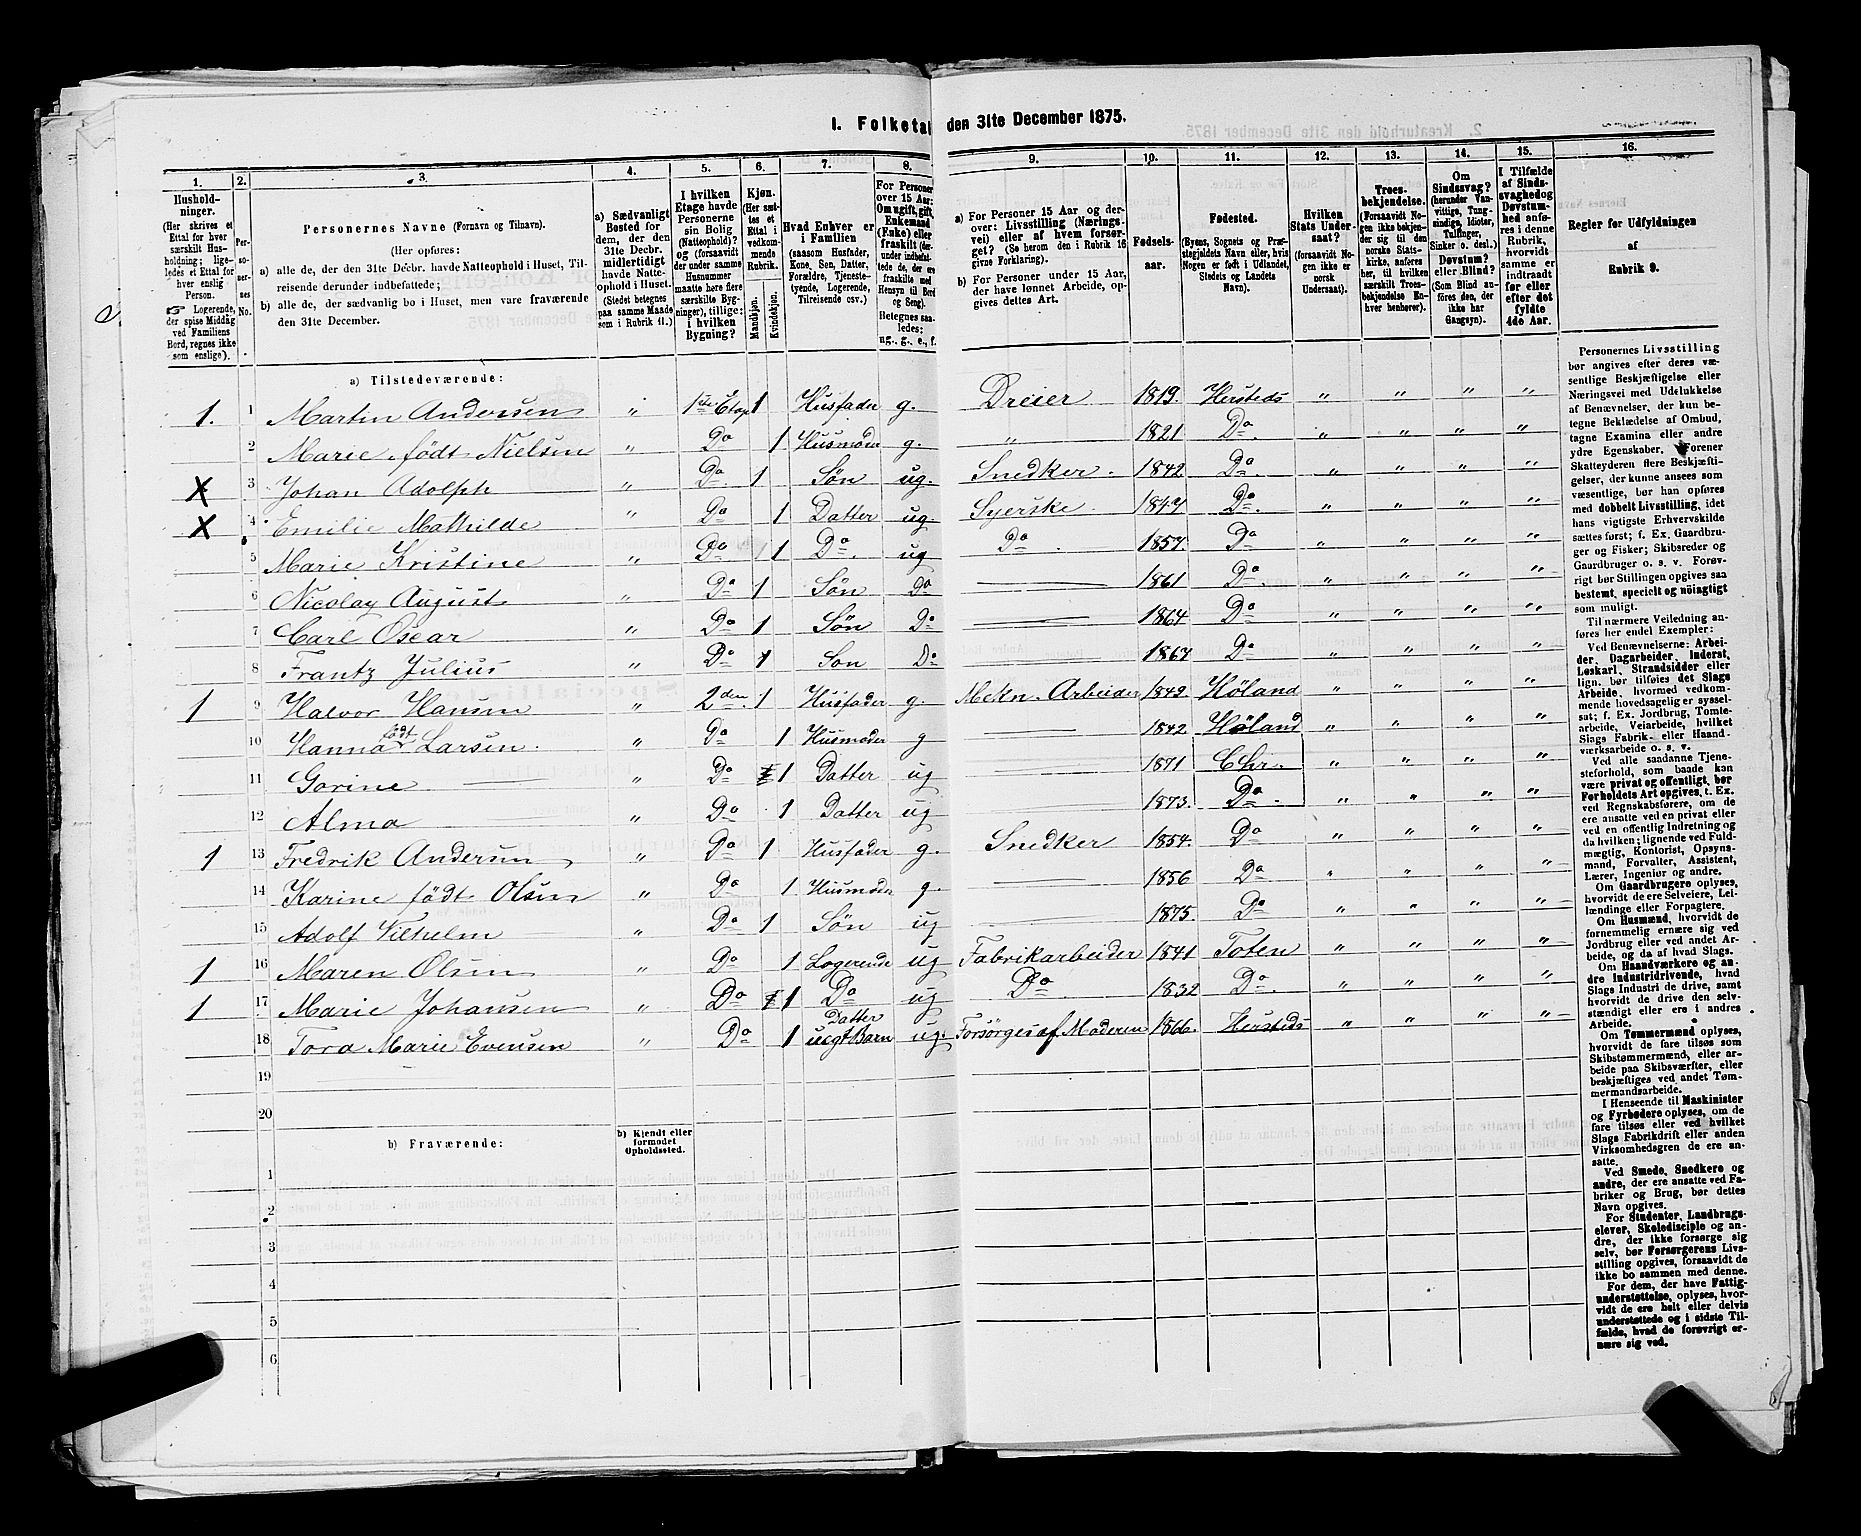 I. Folketa den 31te December 1875.
1. 2. 3. 4. 5. 6. 7. 8. 9. 10. 11. 12. 13. 14. 15. 16.
Hushold-
ninger.
(Her skrives et
Ettal for hver
særskilt Hus-
holdning; lige-
ledes et Ettal for
hver enslig
Person.
☞ Logerende,
der spise Middag
ved Familiens
Bord, regnes ikke
som enslige).
Per-
so-
ner-
nes
No.
Personernes Navne (Fornavn og Tilnavn).
(Her opføres:
a) alle de, der den 31te Decbr. havde Natteophold i Huset, Til-
reisende derunder indbefattede;
b) alle de, der sædvanlig bo i Huset, men vare fraværende
den 31te December.
a) Sædvanligt
Bosted for
dem, der den
31te Decbr.
midlertidigt
havde Natte-
ophold i Huset.
(Stedet betegnes
paa samme Maade
som i Rubrik 11.)
I hvilken
Etage havde
Personerne
sin Bolig
(Natteophold)?
og (forsaavidt
der under samme
Husnummer
maatte here flere
særskilte Byg-
ninger), tillige:
i hvilken
Bygning?
Kjøn.
(Her sæt-
tes et
Ettal i
vedkom-
mende
Rubrik.
Mandskjøn.
Kvindekjøn.
Hvad Enhver er
i Familien
(saasom Husfader,
Kone, Søn, Datter,
Forældre, Tjeneste-
tyende, Logerende,
Tilreisende osv.)
For Personer
over 15 Aar:
Om ugift, gift,
Enkemand
(Enke) eller
fraskilt (der-
under indbefat-
tede de, der ere
fraskilte med
Hensyn til Bord
og Seng).
Betegnes saa-
ledes:
ug., g., e., f.
a) For Personer 15 Aar og der-
over: Livsstilling (Nærings-
vei) eller af hvem forsør-
get? (Se herom den i Rubrik 16
givne Forklaring).
b) For Personer under 15 Aar,
der have lønnet Arbeide, op-
gives dettes Art.
Fødsels-
aar.
Fødested.
(Byens, Sognets og Præ-
stegjeldets Navn eller, hvis
Nogen er født i Udlandet,
Stedets og Landets
Navn).
Hvilken
Stats Under-
saat?
(forsaavidt No-
gen ikke er
norsk
Undersaat).
Troes-
bekjendelse.
(Forsaavidt No-
gen ikke bekjen-
der sig til den
norske Stats-
kirke, anføres
her, til hvilken
særskilt Troes-
bekjendelse En-
hver henhører).
Om
Sindssvag?
(herunder Van-
vittige, Tung-
sindige, Idioter,
Tullinger,
Sinker o. desl.)
Døvstum?
eller Blind?
(Som Blind an-
føres den, der
ikke har
Gangsyn).
I Tilfælde
af Sinds-
svaghed og
Døvstum-
hed anfø-
res i denne
Rubrik,
hvorvidt
samme er
indtraadt
før eller
efter det
fyldte
4de Aar.
Regler for Udfyldningen
af
Rubrik 9.
a) Tilstedeværende:
1. 1 Martin Andersen " 1ste Etag 1 Husfader g. Dreier 1819. Hersteds " " " "
2 Marie født Nielsen " Do 1 Husmoder g. " 1821 Do. " " " "
X 3 Johan Adolph " Do 1 Søn ug. Snedker. 1842 Do. " " " "
X 4 Emilie Mathilde " Do 1 Datter ug Syerske. 1847 Do. " " " "
5 Marie Kristine " Do 1 Do. ug Do. 1857. Do " " " "
6 Nicolay August " Do 1 Søn Do 1861 Do. " " " "
7 Carl Oscar " Do 1 Søn Do 1864 Do. " " " "
8 Frantz Julius " Do 1 Son Do 1867 Do " " " "
1 9 Halvor Hansen " 2den. 1 Husfader g. Mekn. Arbeider 1842. Höland " " " "
10 Hanna født Larsen. " Do 1 Husmoder g 1842 Höland " " " "
11 Gorine " Do 1 Datter ug 1871 Chr. " " " "
12 Alma " Do 1 Datter ug 1873. Do. " " " "
1 13 Fredrik Andersen " Do 1 Husfader g. Snedker 1854. Do " " " "
14 Karine født Olsen " Do 1 Husmoder g. 1856 Do " " " "
15 Adolf Vilhelm " Do 1 Søn ug 1875. Do " " " "
1 16 Maren Olsen " Do 1 Logerende ug Fabrikarbeider 1841 Toten " " " "
1 17 Marie Johansen " Do 1 Do ug Do 1832 Do. " " " "
Datter
18 Tora Marie Evensen " Do 1 uegt Barn ug. Forsörges af Moderen 1866. Hersteds " " " "
19
20
b) Fraværende:
b) Kjendt eller
formodet
Opholdssted.
1
2
3
4
5
6
Personernes Livsstilling
bør angives efter deres væ-
sentlige Beskjæftigelse eller
Næringsvei med Udelukkelse
af Benævnelser, der kun be-
tegne Beklædelse af Ombud,
tagne Examina eller andre
ydre Egenskaber. Forener
Skatteyderen flere Beskjæfti-
gelser, der kunne ansees som
væsentlige, bør han opføres
med dobbelt Livsstilling, idet
hans vigtigste Erhvervskilde
sættes først; f. Ex. Gaardbru-
ger og Fisker; Skibsreder og
Gaardbruger o. s. v. Forøv-
rigt bør Stillingen opgives saa
bestemt, specielt og nöiagtigt
som muligt.
Til nærmere Veiledning an-
føres her endel Exempler:
Ved Benævnelserne: Arbei-
der, Dagarbeider, Inderst,
Løskarl, Strandsidder eller
lign. bør tilføies det Slags
Arbeide, hvormed vedkom-
mende hovedsagelig er syssel-
sat; f. Ex. Jordbrug, Tomte-
arbeide, Veiarbeide, hvilket
Slags Fabrik- eller Haand-
værksarbeide o. s. v.
Ved alle saadanne Tjene-
steforhold, som baade kan
være privat og offentligt, bør
Forholdets Art opgives, t. Ex.
ved Regnskabsførere, om de
ere ansatte ved en privat eller
ved en offentlig Indretning og
da hvilken; lignende ved Fuld-
mægtig, Kontorist, Opsyns-
mand, Forvalter, Assistent,
Lærer, Ingeniør og andre.
Om Gaardbrugere oplyses,
hvorvidt de ere Selveiere, Lei-
lændinge eller Forpagtere.
Om Husmænd, hvorvidt de
fornemmelig ernære sig ved
Jordbrug eller ved andet Ar-
beide, og da af hvad Slags.
Om Haandværkere og an-
dre Industridrivende, hvad
Slags Industri de drive, samt
hvorvidt de drive den selv-
stændigt eller ere i andres
Arbeide.
Om Tømmermænd oplyses,
hvorvidt de fare tilsøs som
Skibstømmermænd, eller ar-
beide paa Skibsværfter, eller
beskjæftiges ved andet Tøm-
mermandsarbeide.
I Henseende til Maskinister
og Fyrbødere oplyses, om de
fare tilsøs eller ved hvilket
Slags Fabrikdrift eller anden
Virksomhedsgren de ere an-
satte.
Ved Smede, Snedkere og
andre, der ere ansatte ved Fa-
briker og Brug, bør dettes
Navn opgives.
For Studenter, Landbrugs-
elever, Skoledisciple og an-
dre, der ikke forsørge sig
selv, bør Forsørgerens Livs-
stilling opgives, forsaavidt de
ikke bo sammen med denne.
For dem, der have Fattig-
understøttelse, oplyses, hvor-
vidt de ere helt eller delvis
understøttede og i sidste Til-
fælde, hvad de forøvrigt er-
nære sig ved.